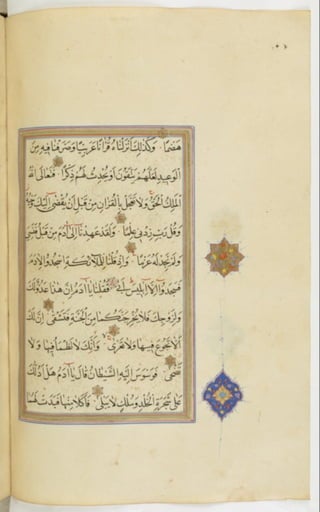 هَضْمًا وَكَذٰلِكَ اَنْزَلْنَاهُ قُرْاٰنًا عَرَبِيًّا وَصَرَّفْنَا فِيهِ مِنَ
الْوَعِيدِ لَعَلَّهُمْ يَتَّقُونَ اَوْ يُحْدِثُ لَهُمْ ذِكْرًا فَتَعَالَى اللّٰهُ
الْمَلِكُ الْحَقُّ وَلَا تَعْجَلْ بِالْقُرْاٰنِ مِنْ قَبْلِ اَنْ يُقْضٰى اِلَيْكَ وَحْيُهُ
وَقُلْ رَبِّ زِدْنِي عِلْمًا وَلَقَدْ عَهِدْنَا اِلٰى اٰدَمَ مِنْ قَبْلُ فَنَسِيَ
وَلَمْ نَجِدْ لَهُ عَزْمًا وَاِذْ قُلْنَا لِلْمَلَائِكَةِ اسْجُدُوا لِاٰدَمَ
فَسَجَدُوا اِلَّا اِبْلِيسَ اَبٰى فَقُلْنَا يَا اٰدَمُ اِنَّ هٰذَا عَدُوٌّ لَكَ
وَلِزَوْجِكَ فَلَا يُخْرِجَنَّكُمَا مِنَ الْجَنَّةِ فَتَشْقٰى اِنَّ لَكَ
اَلَّا تَجُوعَ فِيهَا وَلَا تَعْرٰى وَاَنَّكَ لَا تَظْمَأُ فِيهَا وَلَا
تَضْحٰى فَوَسْوَسَ اِلَيْهِ الشَّيْطَانُ قَالَ يَا اٰدَمُ هَلْ اَدُلُّكَ
عَلٰى شَجَرَةِ الْخُلْدِ وَمُلْكٍ لَا يَبْلٰى فَاَكَلَا مِنْهَا فَبَدَتْ لَهُمَا